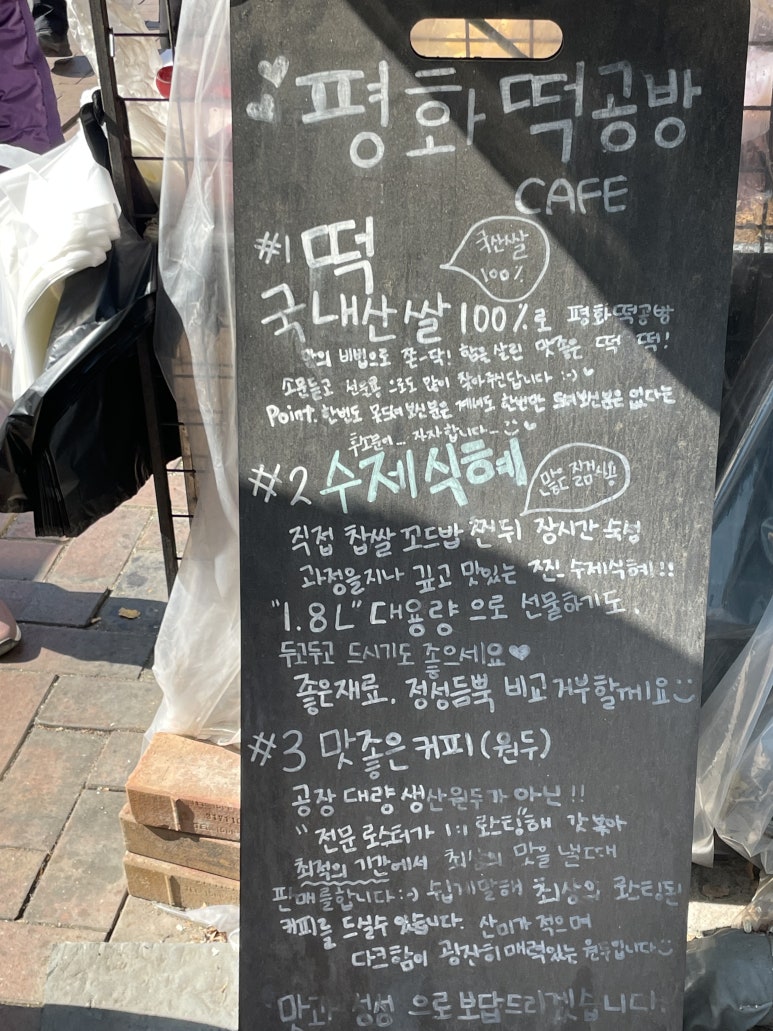 평화 떡공방
CAFE
#1 떡
국산쌀
100%
국내산 쌀 100%로 평화떡공방
만의 비법으로 쫀-닥! 함을 살린 맛좋은 떡 떡!
소문듣고 선물용으로도 많이 찾아주신답니다 :-)
Point. 한번도 못드셔보신분은 계셔도 한번만 드셔보신분은 없다는
후소문이... 자자합니다-
#2 수제식혜
직접 찹쌀 꼬드밥 찐뒤 장시간 숙성
과정을지나 깊고 맛있는 찐! 수제식혜!!
"1.8L" 대용량 으로 선물하기도,
두고두고 드시기도 좋으세요♥
좋은재료, 정성듬뿍 비교 거부할께요
#3 맛좋은 커피(원두)
공장 대량 생산원두가 아닌!!
"전문 로스터가 1:1 로스팅"해 갓볶아
최적의 기간에서 최상의 맛을 낼때
판매를합니다:-) 쉽게말해 최상의 로스팅된
커피를 드실수 있습니다. 산미가 적으며
다크함이 굉장히 매력있는 원두입니다
맛과 정성 으로 보답드리겠습니다.